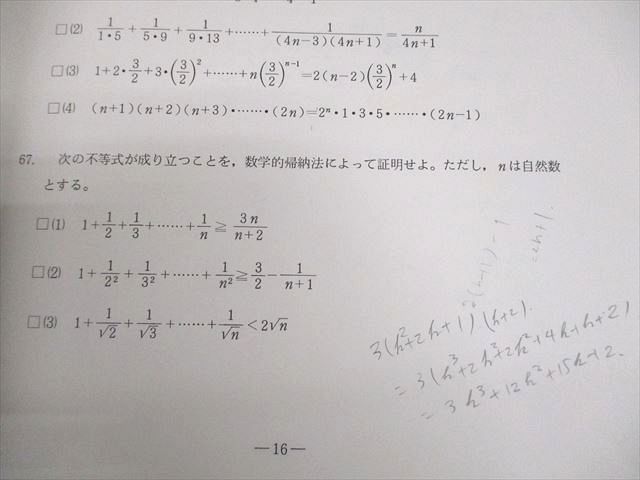 □(2) 1/(1・5) + 1/(5・9) + 1/(9・13) + …… + 1/((4n−3)(4n+1)) = n/(4n+1)
□(3) 1+2・3/2+3・(3/2)²+……+n(3/2)ⁿ⁻¹=2(n−2)(3/2)ⁿ+4
□(4) (n+1)(n+2)(n+3)・……・(2n)=2ⁿ・1・3・5・……・(2n−1)
67. 次の不等式が成り立つことを,数学的帰納法によって証明せよ。ただし,nは自然数
とする。
□(1) 1+1/2+1/3+……+1/n≧3n/(n+2)
□(2) 1+1/2²+1/3²+……+1/n²≧3/2−1/(n+1)
□(3) 1+1/√2+1/√3+……+1/√n<2√n
3(k²+2k+1)(k+2)
=3(k³+2k²+2k²+4k+k+2)
=3k³+12k²+15k+2
—16—